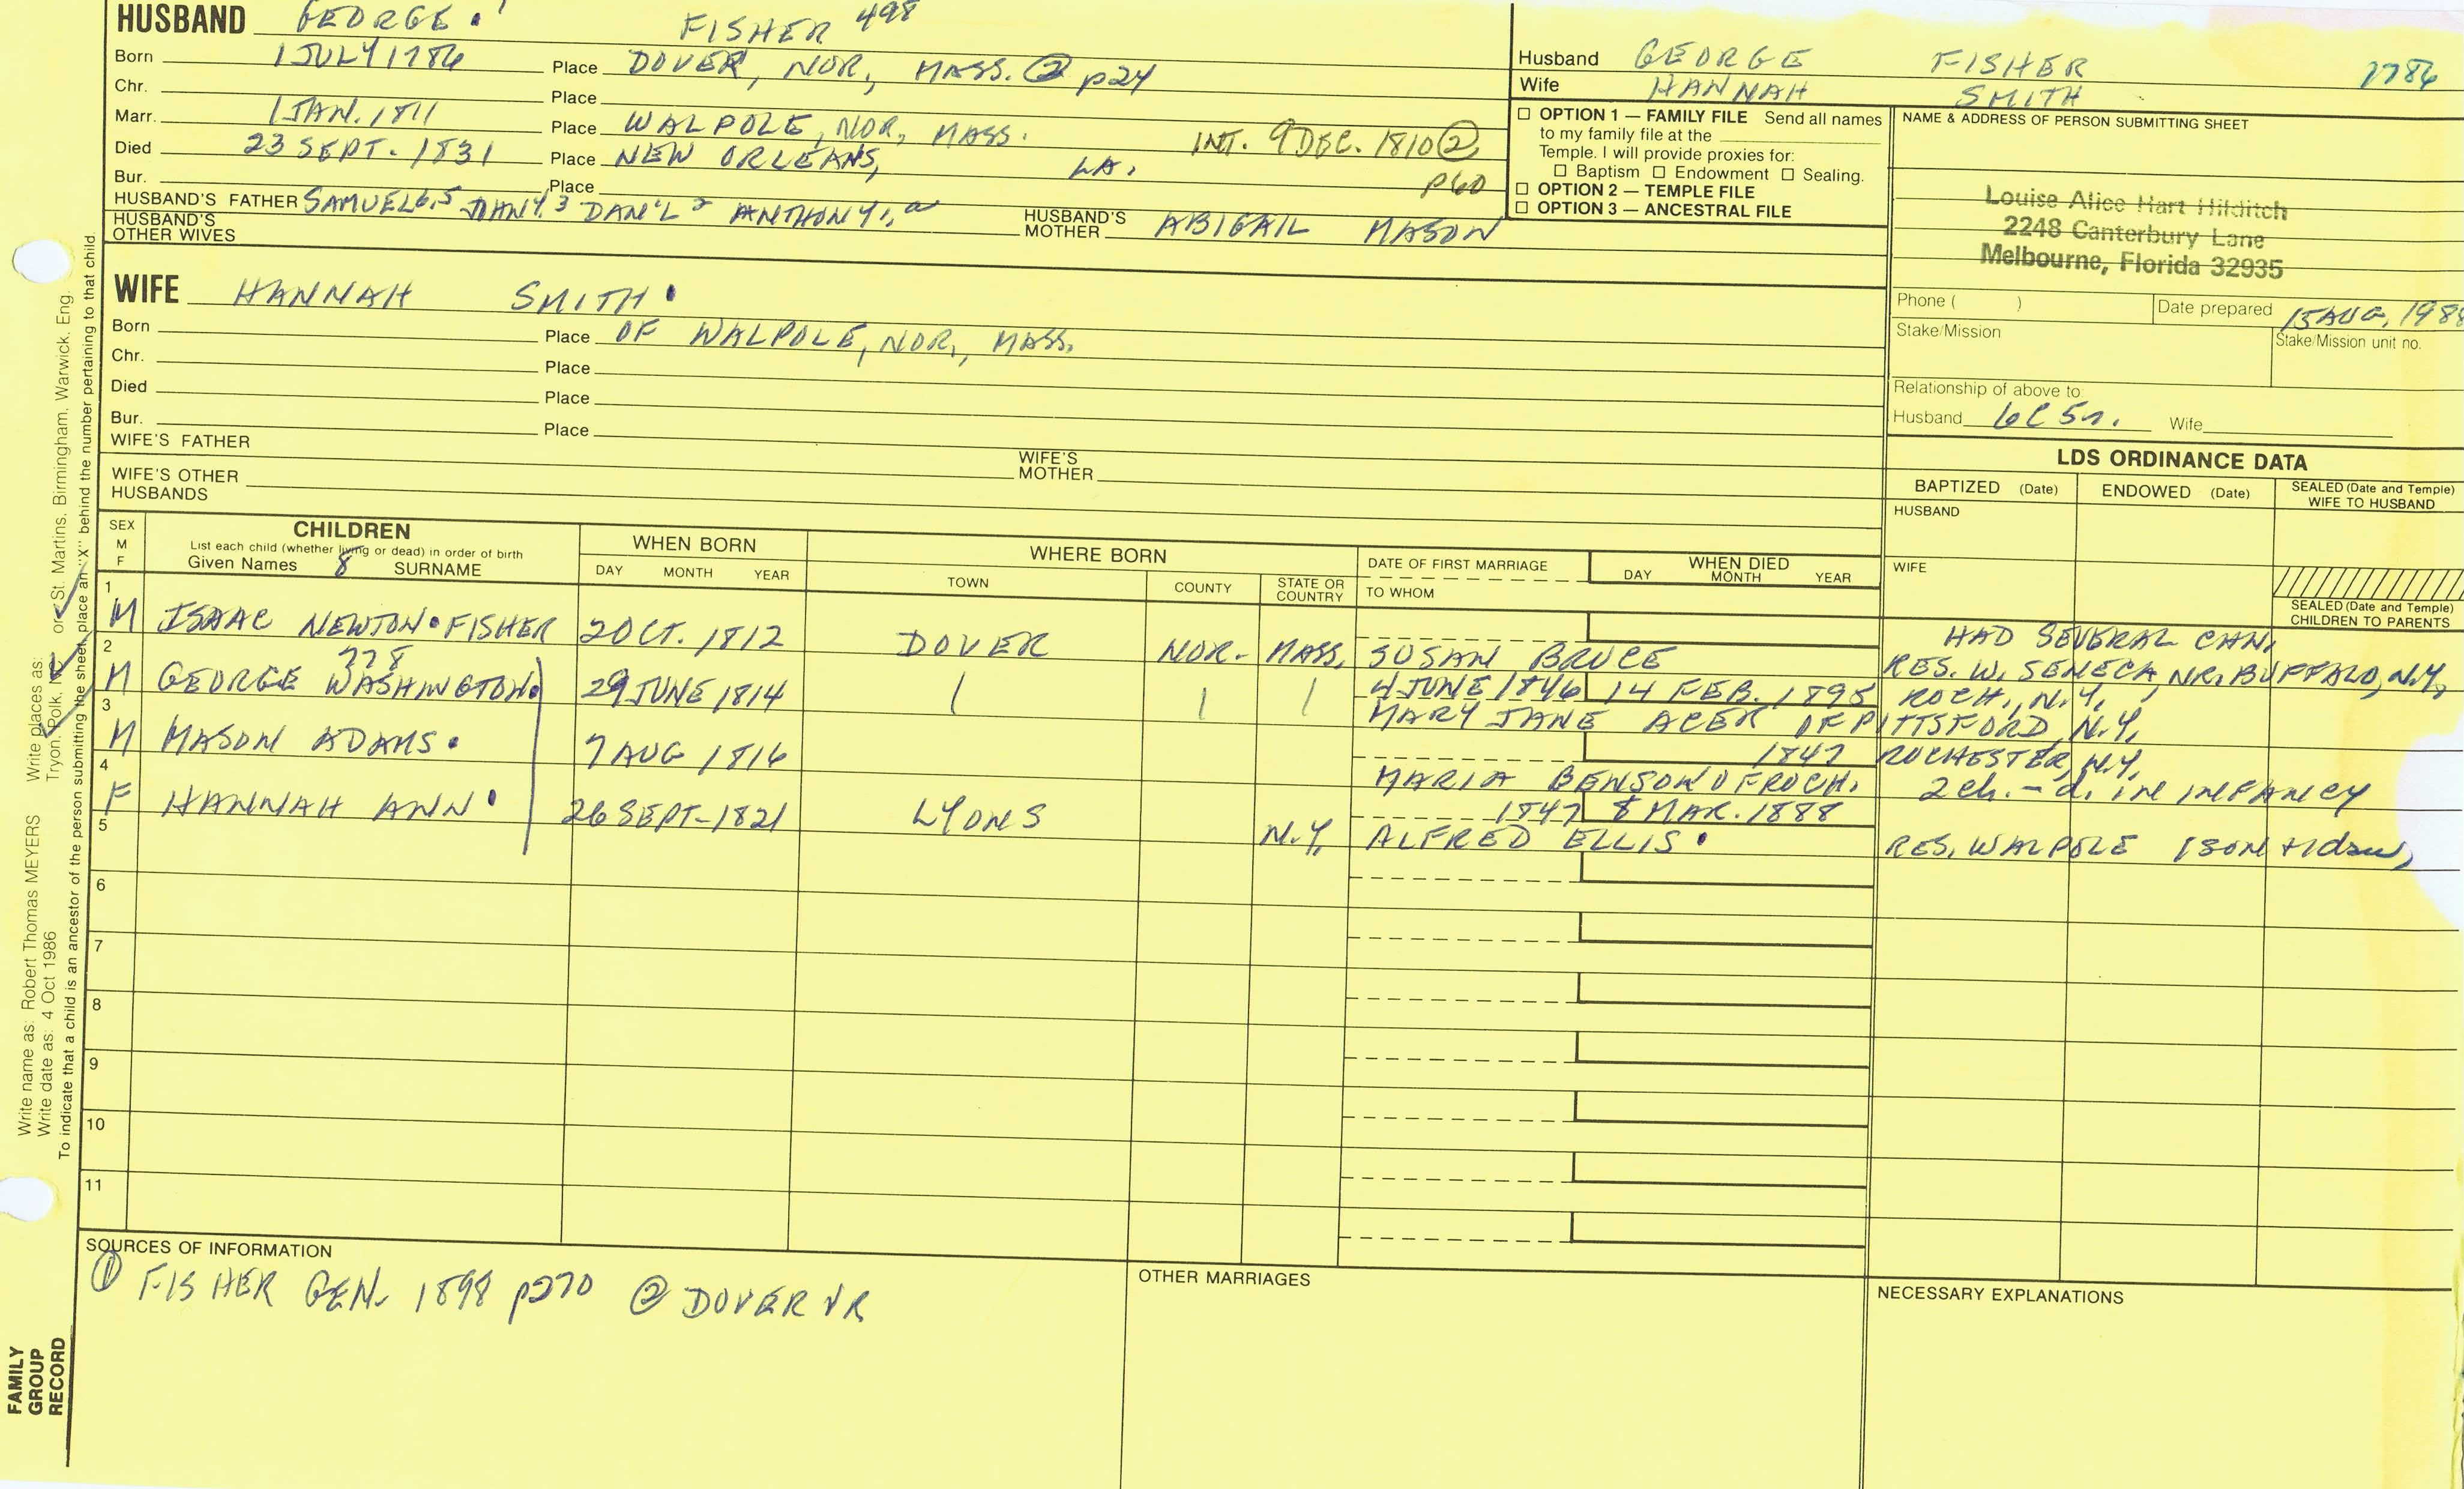 HUSBAND GEORGE. FISHER 498
Born 1 JULY 1786 Place DOVER, NOR, MASS. ② p24
Chr. Place
Marr. 1 JAN. 1811 Place WALPOLE, NOR, MASS. INT. 9 DEC. 1810 ② p60
Died 23 SEPT. 1831 Place NEW ORLEANS, LA.
Bur. Place
HUSBAND'S FATHER SAMUEL 6,5 JOHN 4,3 DAN'L 2 ANTHONY 1, a HUSBAND'S MOTHER ABIGAIL MASON
HUSBAND'S OTHER WIVES
WIFE HANNAH SMITH.
Born Place OF WALPOLE, NOR, MASS.
Chr. Place
Died Place
Bur. Place
WIFE'S FATHER WIFE'S MOTHER
WIFE'S OTHER HUSBANDS
Husband GEORGE FISHER 1786
Wife HANNAH SMITH
☐ OPTION 1 — FAMILY FILE Send all names
to my family file at the
Temple. I will provide proxies for:
☐ Baptism ☐ Endowment ☐ Sealing.
☐ OPTION 2 — TEMPLE FILE
☐ OPTION 3 — ANCESTRAL FILE
NAME & ADDRESS OF PERSON SUBMITTING SHEET
Louise Alice Hart Hilditch
2248 Canterbury Lane
Melbourne, Florida 32935
Phone ( ) Date prepared 15 AUG, 198
Stake/Mission Stake/Mission unit no.
Relationship of above to
Husband 6C 5r. Wife
LDS ORDINANCE DATA
BAPTIZED (Date) ENDOWED (Date) SEALED (Date and Temple) WIFE TO HUSBAND
HUSBAND
WIFE
SEALED (Date and Temple) CHILDREN TO PARENTS
SEX M F
CHILDREN
List each child (whether living or dead) in order of birth
Given Names 8 SURNAME
WHEN BORN
DAY MONTH YEAR
WHERE BORN
TOWN COUNTY STATE OR COUNTRY
DATE OF FIRST MARRIAGE
TO WHOM
WHEN DIED
DAY MONTH YEAR
1 M ISAAC NEWTON. FISHER 2 OCT. 1812 DOVER NOR- MASS, SUSAN BRUCE HAD SEVERAL CHN,
RES. W. SENECA, NR. BUFFALO, N.Y,
2 M GEORGE WASHINGTON. 778 29 JUNE 1814 4 JUNE 1846 14 FEB. 1895 ROCH., N.Y,
MARY JANE ACER OF PITTSFORD, N.Y,
3 M MASON ADAMS. 7 AUG 1816 1847 ROCHESTER, N.Y,
MARIA BENSON OF ROCH. 2 ch. - d. in infancy
4 F HANNAH ANN. 26 SEPT-1821 LYONS N.Y, 1847 8 MAR. 1888
ALFRED ELLIS. RES, WALPOLE 1 SON + 1 dau,
5
6
7
8
9
10
11
SOURCES OF INFORMATION
① FISHER GEN. 1898 p270 ② DOVER VR
OTHER MARRIAGES
NECESSARY EXPLANATIONS
Write name as: Robert Thomas MEYERS Write places as:
Write date as: 4 Oct 1986 Tryon, Polk, NC or St. Martins, Birmingham, Warwick, Eng.
To indicate that a child is an ancestor of the person submitting the sheet, place an "X" behind the number pertaining to that child.
FAMILY
GROUP
RECORD